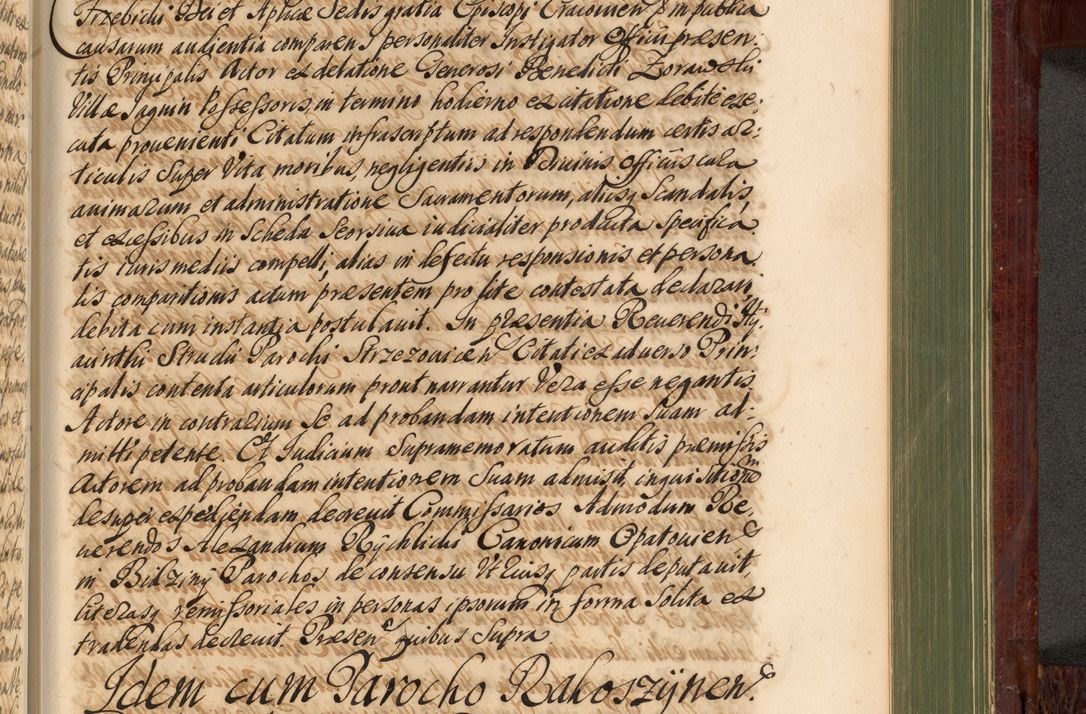 Trzebicki Dei et Aplicæ Sedis gratia Episcopi Cracovien. in publica
causarum audientia comparens personaliter Instigator Officii præsen-
tis Principalis Actor ex delatione Generosi Benedicti Zorawski
Villæ Jagnin Possessoris, in termino hodierno ex citatione debite exe-
cuta provenienti Citatum infrascriptum ad respondendum certis ar-
ticulis super Vita moribus, negligentiis in Divinis Officiis cura
animarum et administratione Sacramentorum, aliisq Scandalis,
et excessibus in Scheda Seorsiva iudicialiter producta Specifica
tis iuris mediis compelli, alias in defectu responsionis et persona
lis comparitionis actum præsentem pro lite contestata declarari
debita cum instantia postulavit. In præsentia Reverendi Hy-
acinthi Parochi Strzezovicen Citati ex adverso Prin-
cipalis contenta articulorum prout narrantur Vera esse negantis
Actore in contrarium Se ad probandam intentionem suam ad-
mitti petente. Et Judicium Supramemoratum auditis præmissis
Actorem ad probandam intentionem Suam admisit, inquisitionem
desuper expediendam decrevit Commissarios Admodum Re-
verendos Alexandrum Rÿchlicki Canonicum Opatovien
in Bidzinÿ Parochos de consensu Utriusq partis deputavit,
literasq remissoriales in personas ipsorum in forma Solita ex
tradendas decrevit. Præsen quibus Supra
Idem cum Parocho Rakoszÿnen.